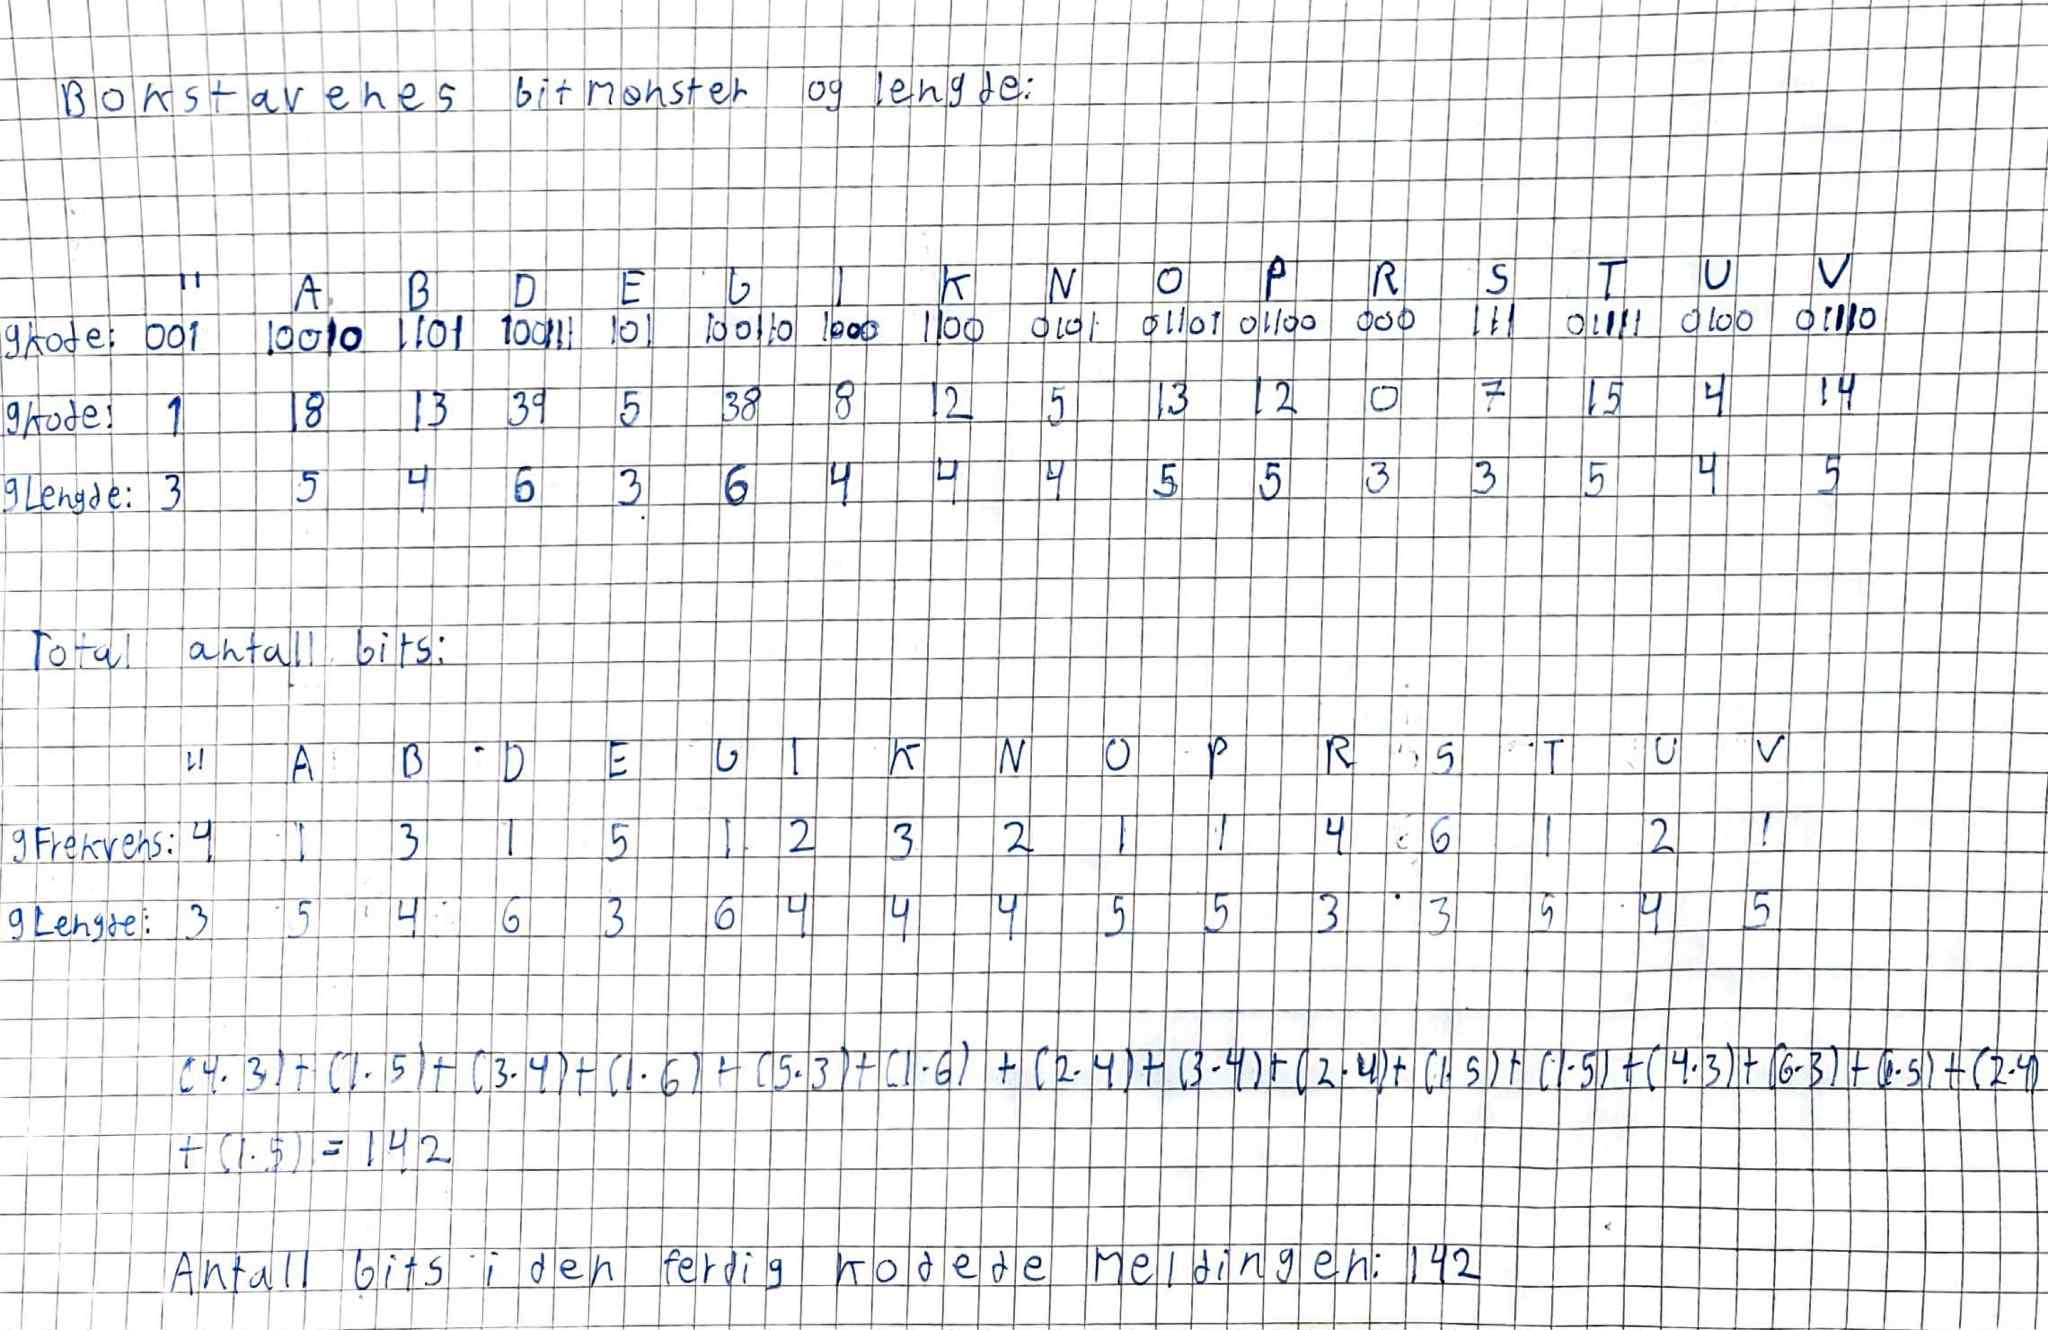 Bokstavenes bitmønster og lengde:
" A B D E G I K N O P R S T U V
gkode: 001 10010 1101 100111 101 100110 1000 1100 0101 01101 01100 000 111 01111 0100 01110
gkode: 1 18 13 39 5 38 8 12 5 13 12 0 7 15 4 14
gLengde: 3 5 4 6 3 6 4 4 4 5 5 3 3 5 4 5
Total antall bits:
" A B D E G I K N O P R S T U V
gFrekvens: 4 1 3 1 5 1 2 3 2 1 1 4 6 1 2 1
gLengde: 3 5 4 6 3 6 4 4 4 5 5 3 3 5 4 5
(4·3)+(1·5)+(3·4)+(1·6)+(5·3)+(1·6)+(2·4)+(3·4)+(2·4)+(1·5)+(1·5)+(4·3)+(6·3)+(1·5)+(2·4)
+(1·5)=142
Antall bits i den ferdig kodede meldingen: 142